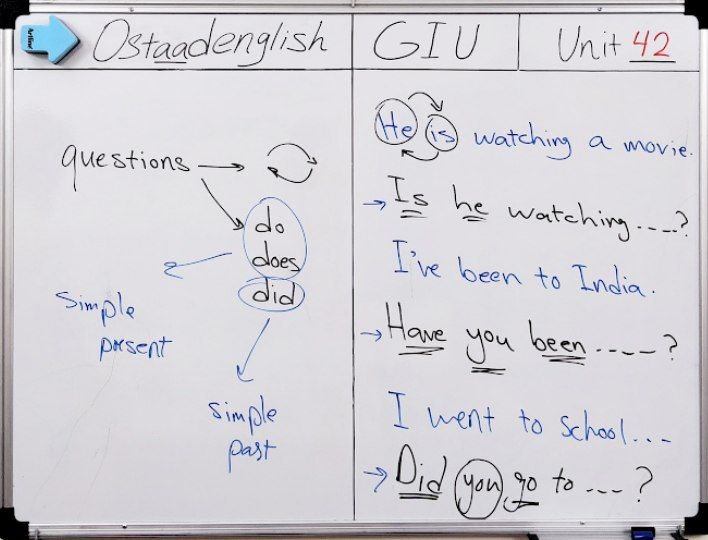 Ostaadenglish
GIU
Unit 42
questions
do
does
did
simple
present
simple
past
He is watching a movie.
Is he watching....?
I've been to India.
Have you been ----?
I went to school...
Did you go to ---?